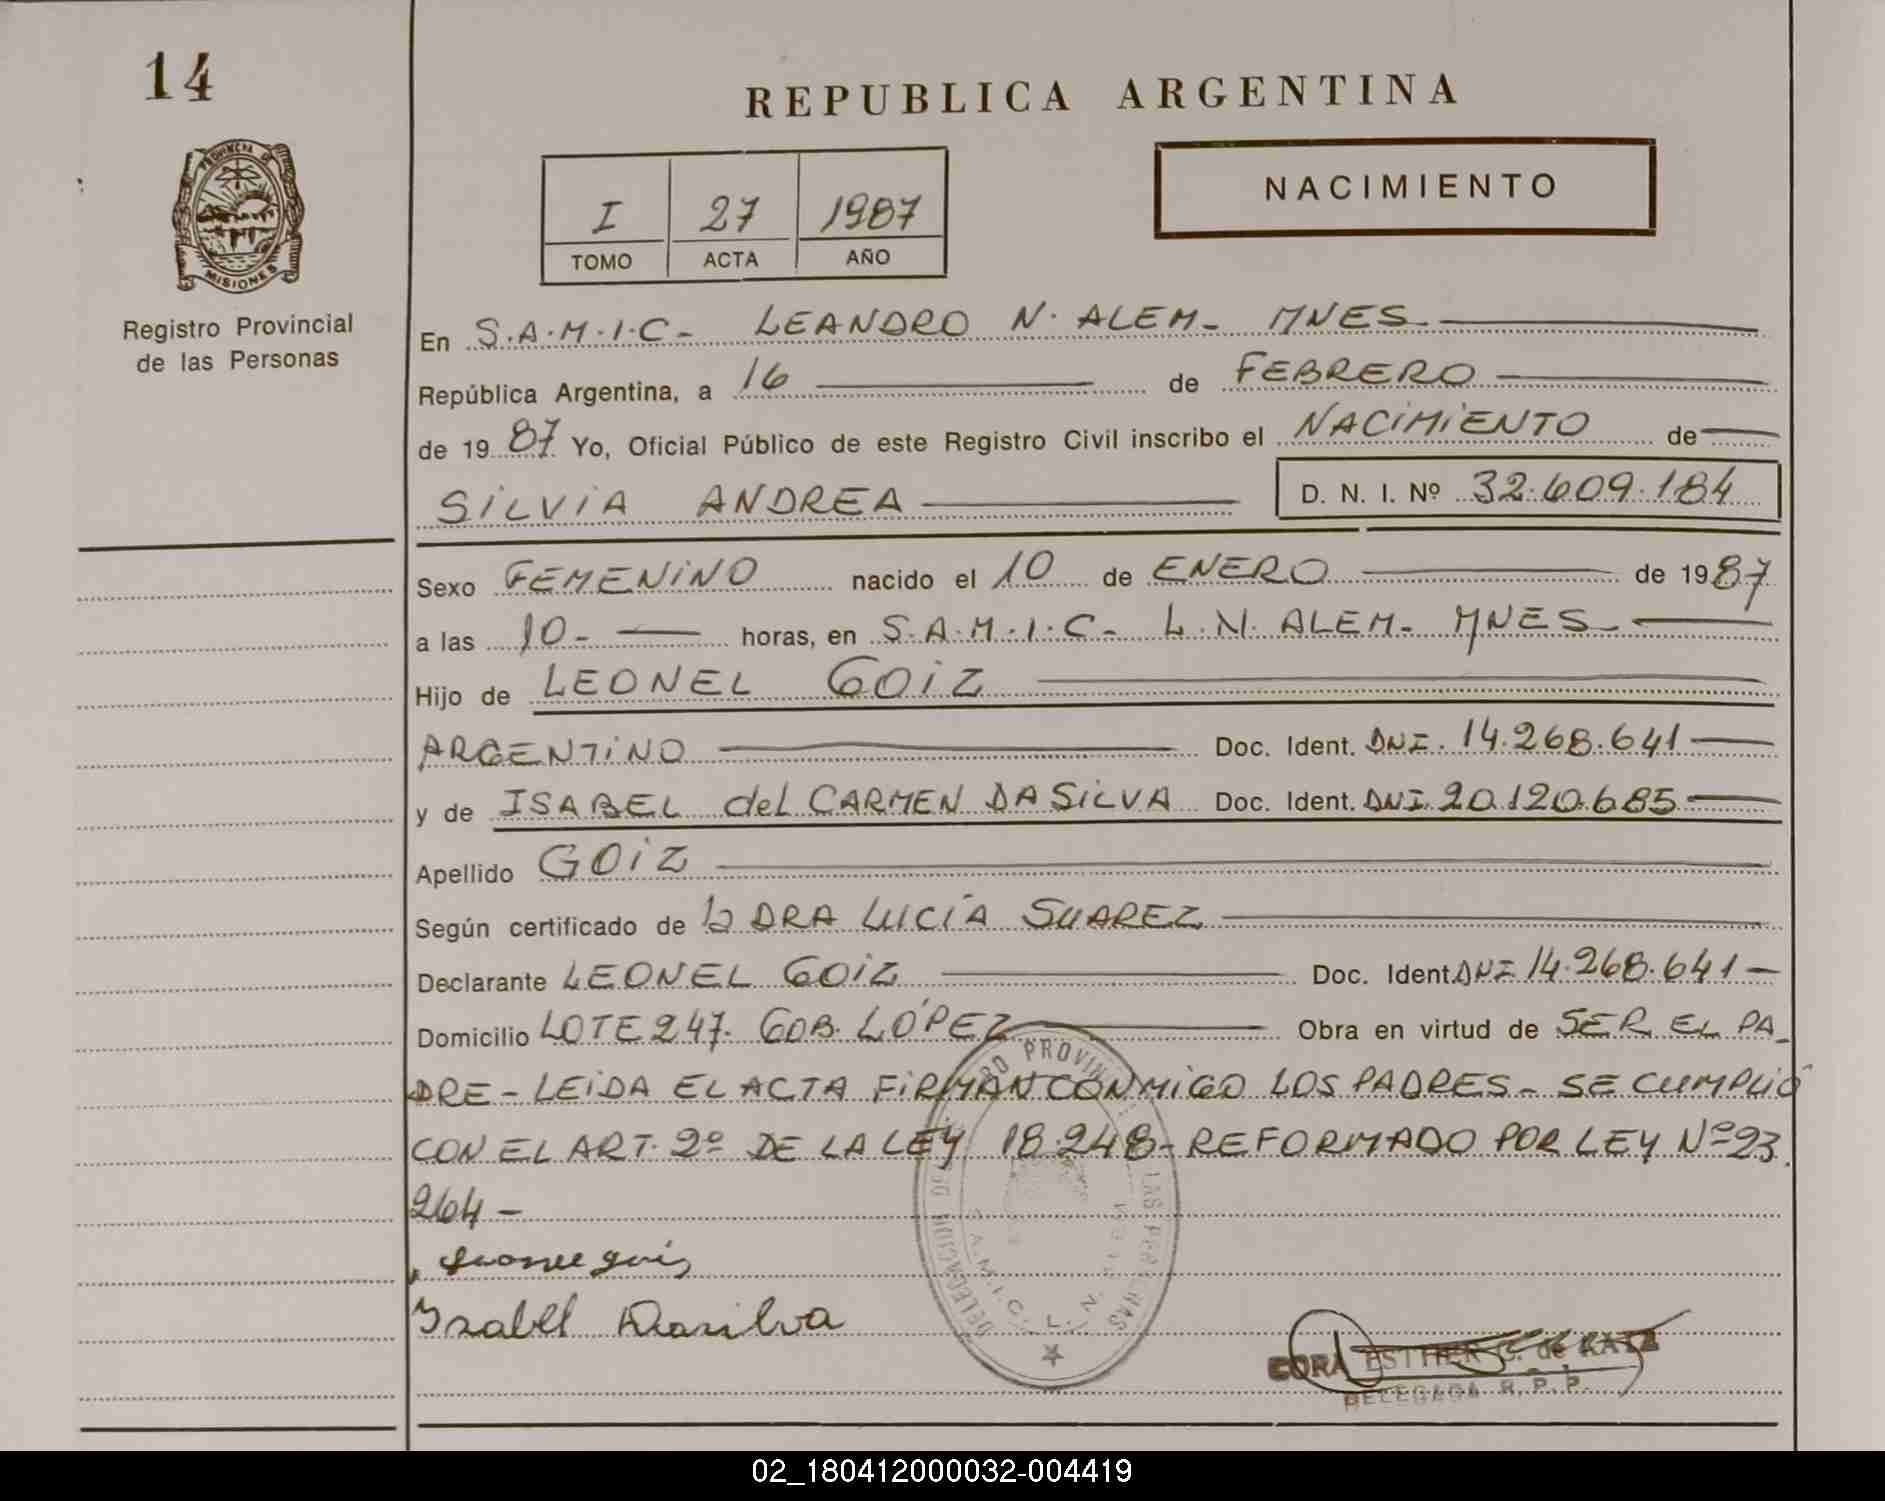 14
REPUBLICA ARGENTINA
PROVINCIA DE
MISIONES
Registro Provincial
de las Personas
I 27 1987
TOMO ACTA AÑO
NACIMIENTO
En S.A.M.I.C- LEANDRO N. ALEM- MNES
República Argentina, a 16 de FEBRERO
de 1987 Yo, Oficial Público de este Registro Civil inscribo el NACIMIENTO de
SILVIA ANDREA D. N. I. Nº 32.609.184
Sexo FEMENINO nacido el 10 de ENERO de 1987
a las 10- horas, en S.A.M.I.C- L.N. ALEM- MNES
Hijo de LEONEL GOIZ
ARGENTINO Doc. Ident. DNI. 14.268.641
y de ISABEL del CARMEN DA SILVA Doc. Ident. DNI. 20.120.685
Apellido GOIZ
Según certificado de la DRA LUCÍA SUAREZ
Declarante LEONEL GOIZ Doc. Ident. DNI 14.268.641
Domicilio LOTE 247. GOB. LÓPEZ Obra en virtud de SER EL PA-
DRE - LEIDA EL ACTA FIRMAN CONMIGO LOS PADRES - SE CUMPLIÓ
CON EL ART. 2º DE LA LEY 18.248 - REFORMADO POR LEY Nº 23.
264 -
Isabel Dasilva
CORA ESTHER G. de RATZ
DELEGADA R.P.P.
02_180412000032-004419